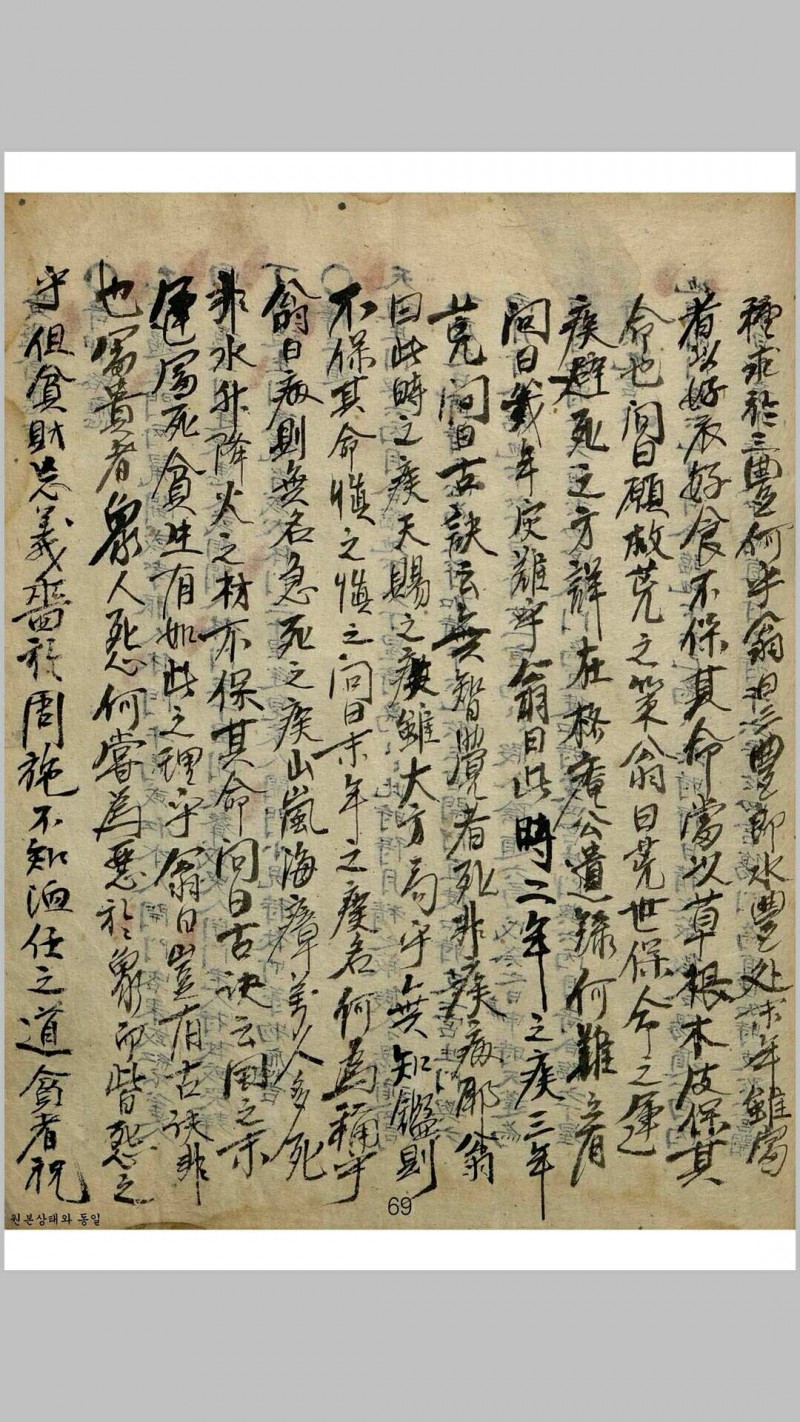 種求於三豊何乎翁曰三豊卽水豊处末年雖富
者以好衣好食不保其命當以草根木皮保其
命也問曰願救荒之策翁曰荒世保命之運
疾避死之方詳在格庵公遺錄何難之有
問曰幾年灾難乎翁曰此時二年之疾三年
荒問曰古訣云無智覺者死非疾病耶翁
曰此時之疾天賜之疾雖大方局乎無知鑑則
不保其命愼之愼之問曰末年之疾名何爲稱乎
翁曰病則無名急死之疾山嵐海瘴萬人多死
非水升降火之材不保其命問曰古訣云国之末
運富死貧生有如此之理乎翁曰豈有古訣非
也富貴者衆人怨何嘗爲惡於衆而皆怨之
乎但貧財忘義嗇於周施不知恤任之道貧者祝
69
원본상태와 동일